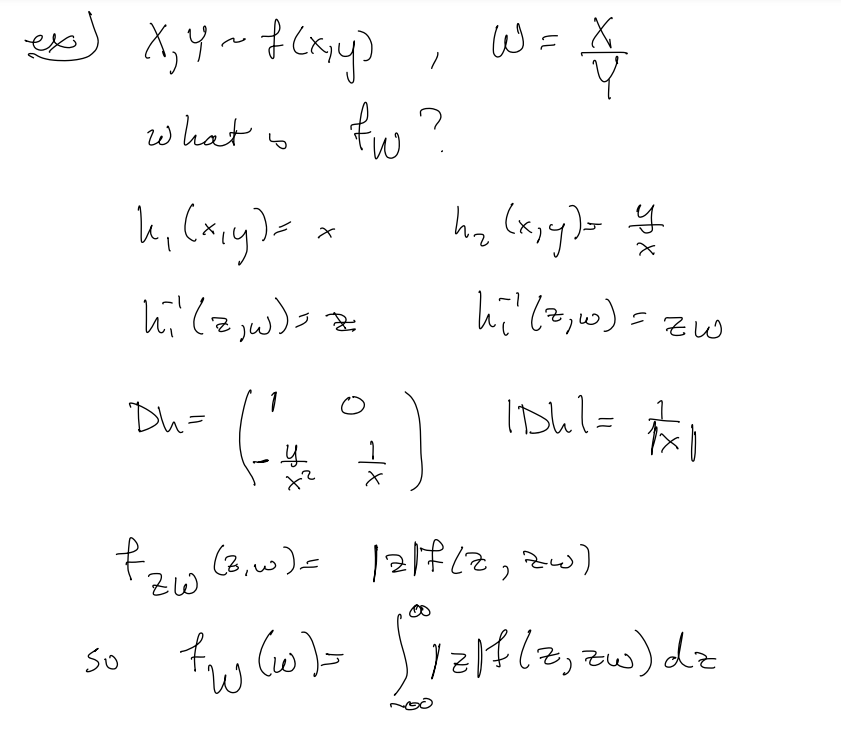 ex) X, Y ~ f(x,y) , W = X/Y
what is f_W ?
h₁(x,y) = x h₂(x,y) = y/x
h₁⁻¹(z,w) = z h₁⁻¹(z,w) = zw
Dh = ( 1 0 ; -y/x² 1/x ) |Dh| = 1/|x|
f_ZW(z,w) = |z|f(z, zw)
so f_W(w) = ∫_{-∞}^{∞} |z|f(z, zw) dz